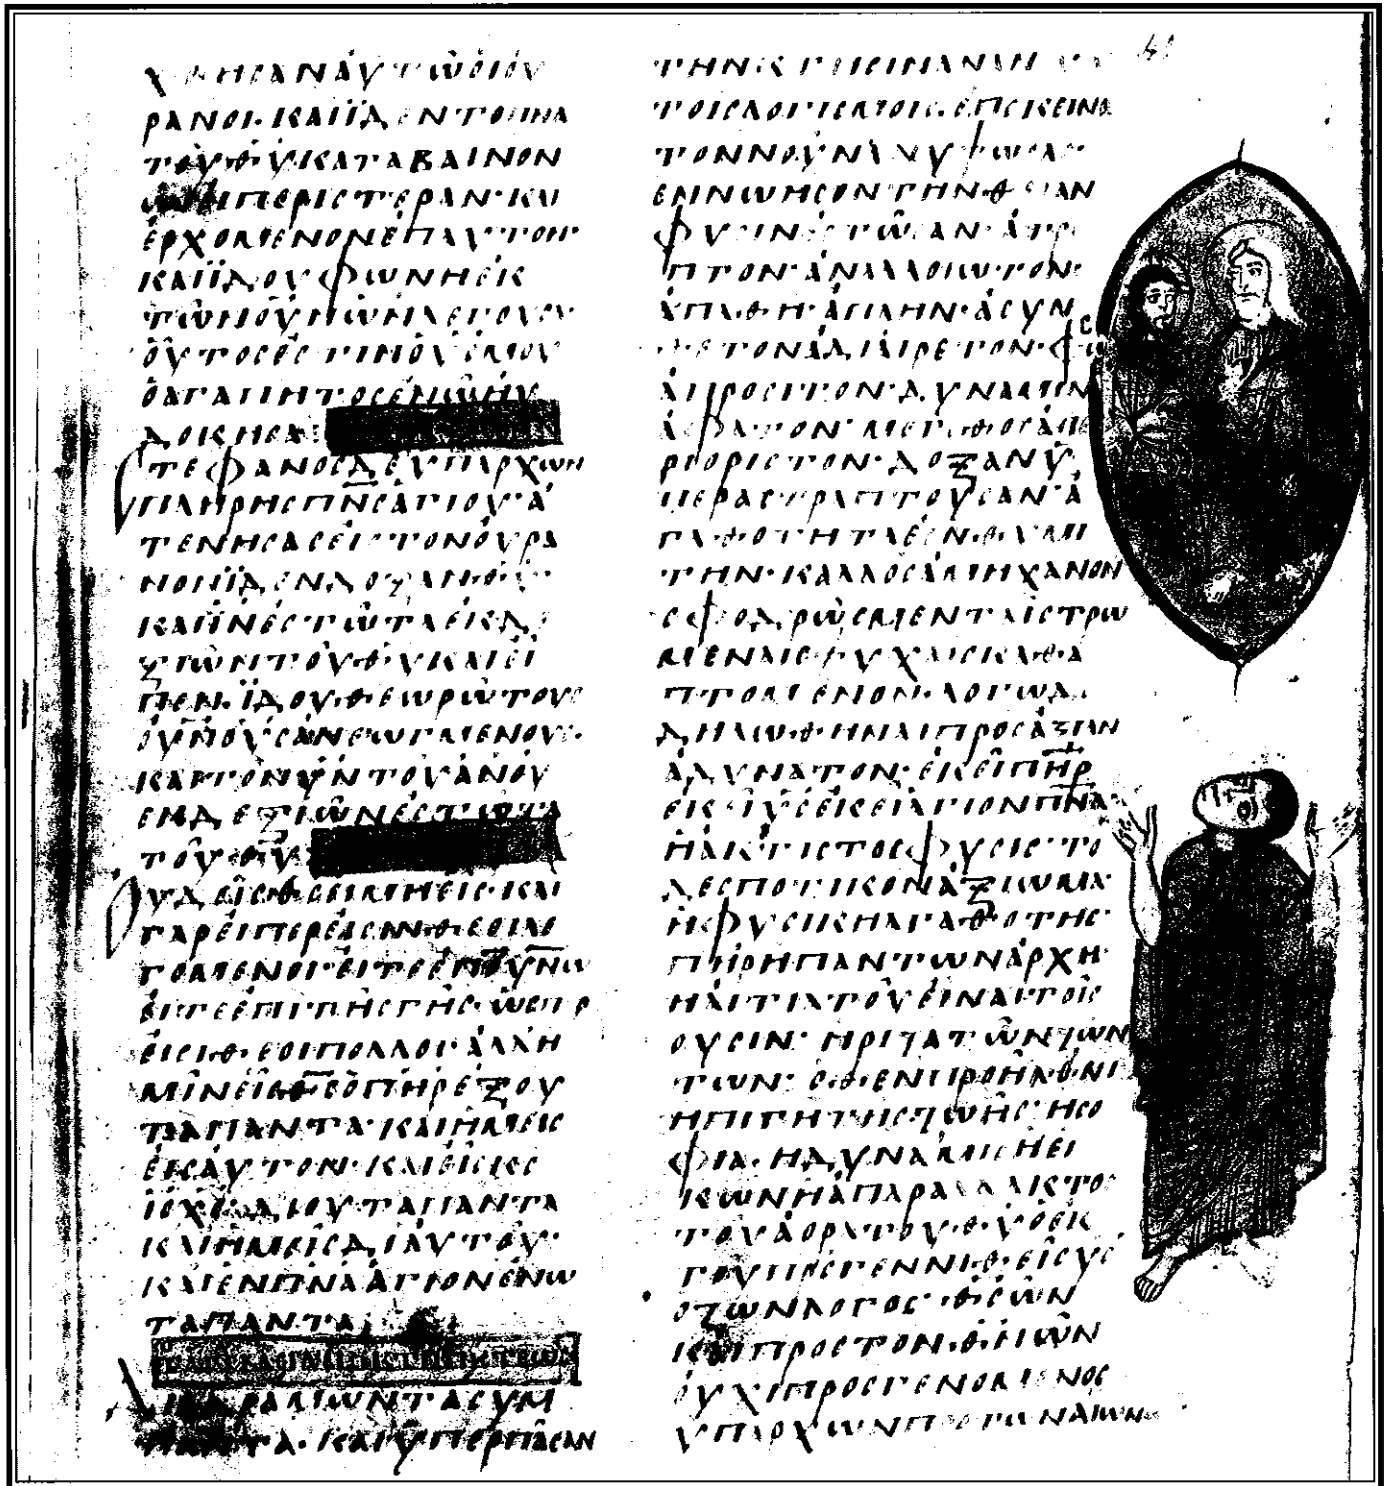 ΧΘΗCΑΝ ΑΥΤΩ ΟΙ ΟΥ
ΡΑΝΟΙ· ΚΑΙ ΪΔΕΝ ΤΟ ΠΝΑ
ΤΟΥ ΘΥ ΚΑΤΑΒΑΙΝΟΝ
ΠΕΡΙCΤΕΡΑΝ· ΚΑΙ
ΕΡΧΟΜΕΝΟΝ ΕΠ ΑΥΤΟΝ·
ΚΑΙ ΪΔΟΥ ΦΩΝΗ ΕΚ
ΤΩΝ ΟΥΝΩΝ ΛΕΓΟΥCΑ
ΟΥΤΟC ΕCΤΙΝ Ο ΥC ΜΟΥ
Ο ΑΓΑΠΗΤΟC ΕΝ Ω ΗΥ
ΔΟΚΗCΑ
CΤΕΦΑΝΟC ΔΕ ΥΠΑΡΧΩΝ
ΠΛΗΡΗC ΠΝC ΑΓΙΟΥ· Α
ΤΕΝΗCΑC ΕΙC ΤΟΝ ΟΥΡΑ
ΝΟΝ ΪΔΕΝ ΔΟΞΑΝ ΘΥ·
ΚΑΙ ΙΝ ΕCΤΩΤΑ ΕΚ ΔΕ
ΞΙΩΝ ΤΟΥ ΘΥ ΚΑΙ ΕΙ
ΠΕΝ· ΪΔΟΥ ΘΕΩΡΩ ΤΟΥC
ΟΥΝΟΥC ΑΝΕΩΓΜΕΝΟΥC·
ΚΑΙ ΤΟΝ ΥΝ ΤΟΥ ΑΝΟΥ
ΕΚ ΔΕΞΙΩΝ ΕCΤΩΤΑ
ΤΟΥ ΘΥ
ΟΥΔΕΙC ΘC ΕΙ ΜΗ ΕΙC· ΚΑΙ
ΓΑΡ ΕΙΠΕΡ ΕΙCΙΝ ΘΕΟΙ ΛΕ
ΓΟΜΕΝΟΙ· ΕΙΤΕ ΕΝ ΟΥΝΩ
ΕΙΤΕ ΕΠΙ ΤΗC ΓΗC· ΩCΠΕΡ
ΕΙCΙ ΘΕΟΙ ΠΟΛΛΟΙ· ΑΛΛ Η
ΜΙΝ ΕΙC ΘC Ο ΠΗΡ ΕΞ ΟΥ
ΤΑ ΠΑΝΤΑ· ΚΑΙ ΗΜΕΙC
ΕΙC ΑΥΤΟΝ· ΚΑΙ ΕΙC ΚC
ΙC ΧC ΔΙ ΟΥ ΤΑ ΠΑΝΤΑ
ΚΑΙ ΗΜΕΙC ΔΙ ΑΥΤΟΥ·
ΚΑΙ ΕΝ ΠΝΑ ΑΓΙΟΝ ΕΝ Ω
ΤΑ ΠΑΝΤΑ
ΤΑ CΥΜ
ΠΑΝΤΑ· ΚΑΙ ΥΠΕΡ ΠΑCΑΝ
ΤΗΝ
ΤΟΙC ΛΟΓΙCΜΟΙC· ΕΠ ΕΚΕΙΝΟ
ΤΟΝ ΝΟΥΝ ΑΝΥΨΩCΑC
ΕΝΝΟΗCΟΝ ΤΗΝ ΘΕΙΑΝ
ΦΥCΙΝ· ΕCΤΩCΑΝ· ΑΤΡΕ
ΠΤΟΝ· ΑΝΑΛΛΟΙΩΤΟΝ·
ΑΠΑΘΗ· ΑΠΛΗΝ· ΑCΥΝ
ΘΕΤΟΝ ΑΔΙΑΙΡΕΤΟΝ· ΦΩC
ΑΠΡΟCΙΤΟΝ· ΔΥΝΑΜΙΝ
ΑΦΑΤΟΝ· ΜΕΓΕΘΟC ΑΠΕ
ΡΙΟΡΙCΤΟΝ· ΔΟΞΑΝ Υ
ΠΕΡΑCΤΡΑΠΤΟΥCΑΝ· Α
ΓΑΘΟΤΗΤΑ ΕΠΙΘΥΜΗ
ΤΗΝ· ΚΑΛΛΟC ΑΜΗΧΑΝΟΝ
CΦΟΔΡΩC ΜΕΝ ΤΑΙC ΤΡΩ
ΜΕΝΑΙC ΨΥΧΑΙC ΚΑΘΑ
ΠΤΟΜΕΝΟΝ· ΛΟΓΩ ΔΕ
ΔΗΛΩΘΗΝΑΙ ΠΡΟC ΑΞΙΑΝ
ΑΔΥΝΑΤΟΝ· ΕΚΕΙ ΠΗΡ
ΕΚΕΙ ΥC ΕΚΕΙ ΑΓΙΟΝ ΠΝΑ
Η ΑΚΤΙCΤΟC ΦΥCΙC· ΤΟ
ΔΕCΠΟΤΙΚΟΝ ΑΞΙΩΜΑ·
Η ΦΥCΙΚΗ ΑΓΑΘΟΤΗC·
ΠΗΡ Η ΠΑΝΤΩΝ ΑΡΧΗ·
Η ΑΙΤΙΑ ΤΟΥ ΕΙΝΑΙ ΤΟΙC
ΟΥCΙΝ· Η ΡΙΖΑ ΤΩΝ ΖΩΝ
ΤΩΝ· ΟΘΕΝ ΠΡΟΗΛΘΕΝ
Η ΠΗΓΗ ΤΗC ΖΩΗC· Η CΟ
ΦΙΑ· Η ΔΥΝΑΜΙC Η ΕΙ
ΚΩΝ Η ΑΠΑΡΑΛΛΑΚΤΟC
ΤΟΥ ΑΟΡΑΤΟΥ ΘΥ Ο ΕΚ
ΤΟΥ ΠΡC ΓΕΝΝΗΘΕΙC ΥC
Ο ΖΩΝ ΛΟΓΟC· ΘC ΩΝ
ΚΑΙ ΠΡΟC ΤΟΝ ΘΝ ΩΝ
ΟΥΧΙ ΠΡΟCΓΕΝΟΜΕΝΟC
ΥΠΑΡΧΩΝ ΠΡΟ ΤΩΝ ΑΙΩΝΩΝ